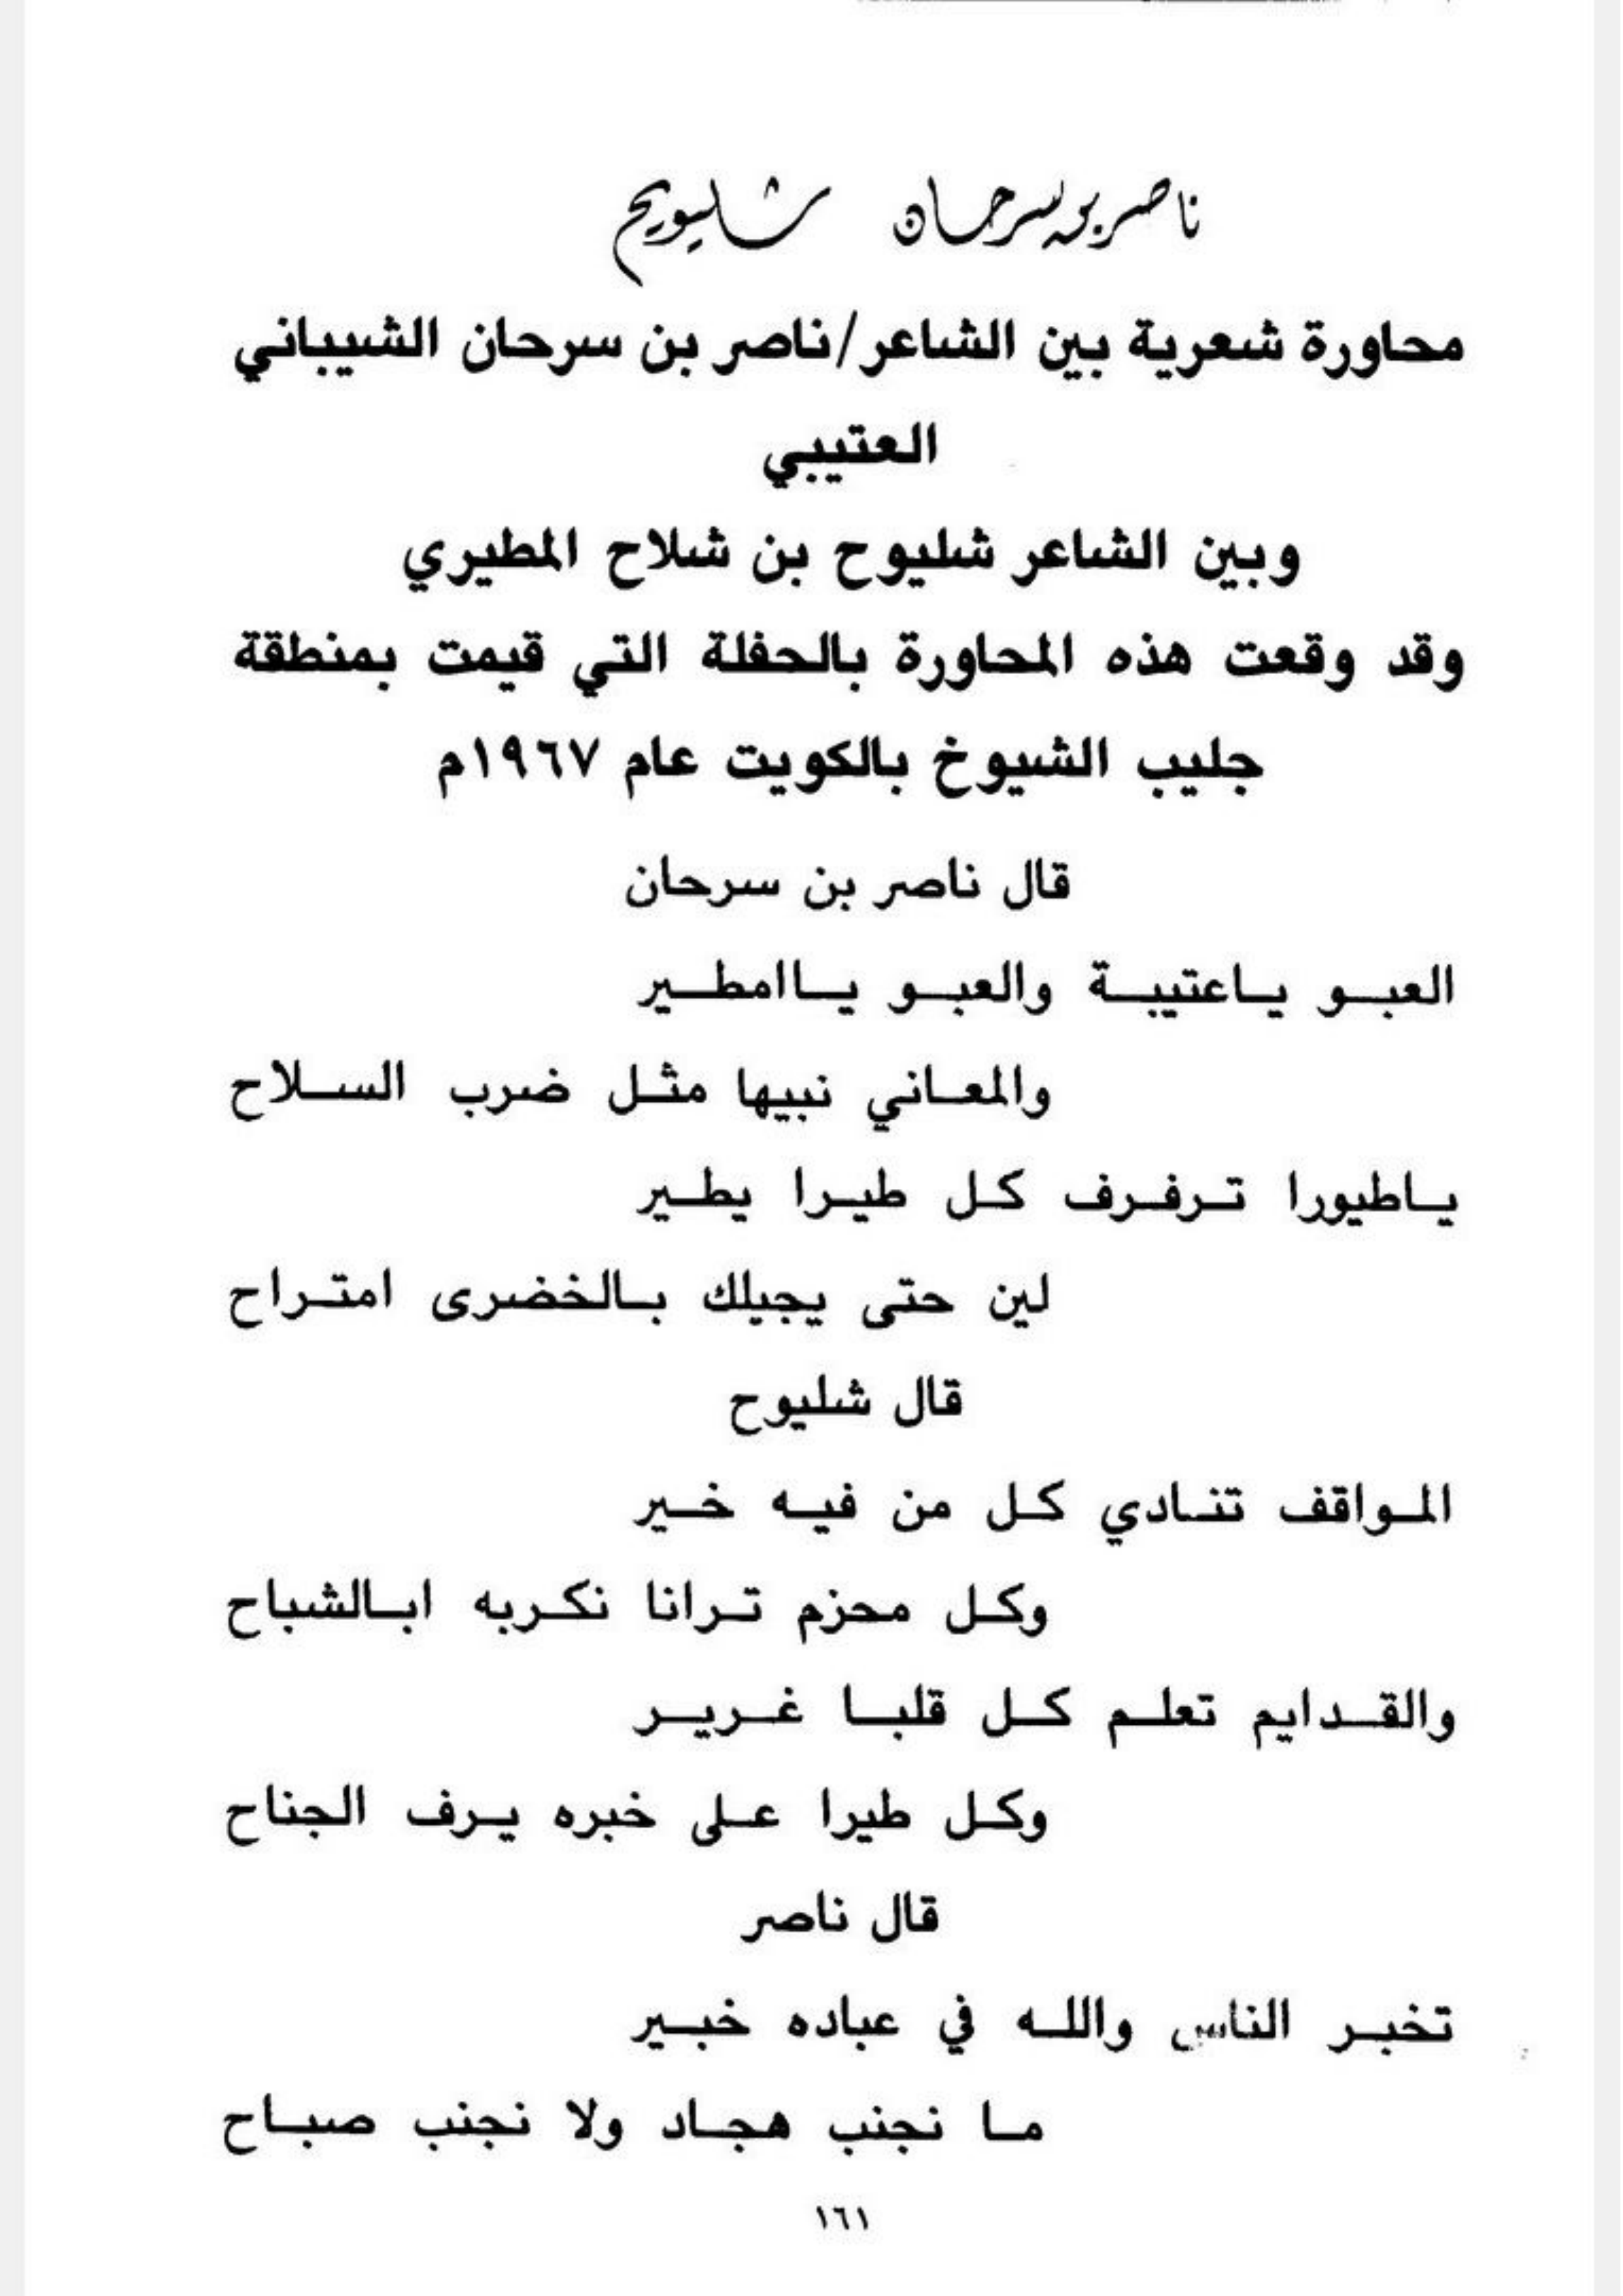 ناصر بن سرحان شليويح
محاورة شعرية بين الشاعر/ناصر بن سرحان الشيباني
العتيبي
وبين الشاعر شليوح بن شلاح المطيري
وقد وقعت هذه المحاورة بالحفلة التي قيمت بمنطقة
جليب الشيوخ بالكويت عام ١٩٦٧م
قال ناصر بن سرحان
العبو ياعتيبة والعبو ياامطير
والمعاني نبيها مثل ضرب السلاح
ياطيورا ترفرف كل طيرا يطير
لين حتى يجيلك بالخضرى امتراح
قال شليوح
المواقف تنادي كل من فيه خير
وكل محزم ترانا نكربه ابالشباح
والقدايم تعلم كل قلبا غرير
وكل طيرا على خبره يرف الجناح
قال ناصر
تخبر الناس والله في عباده خبير
ما نجنب هجاد ولا نجنب صباح
١٦١